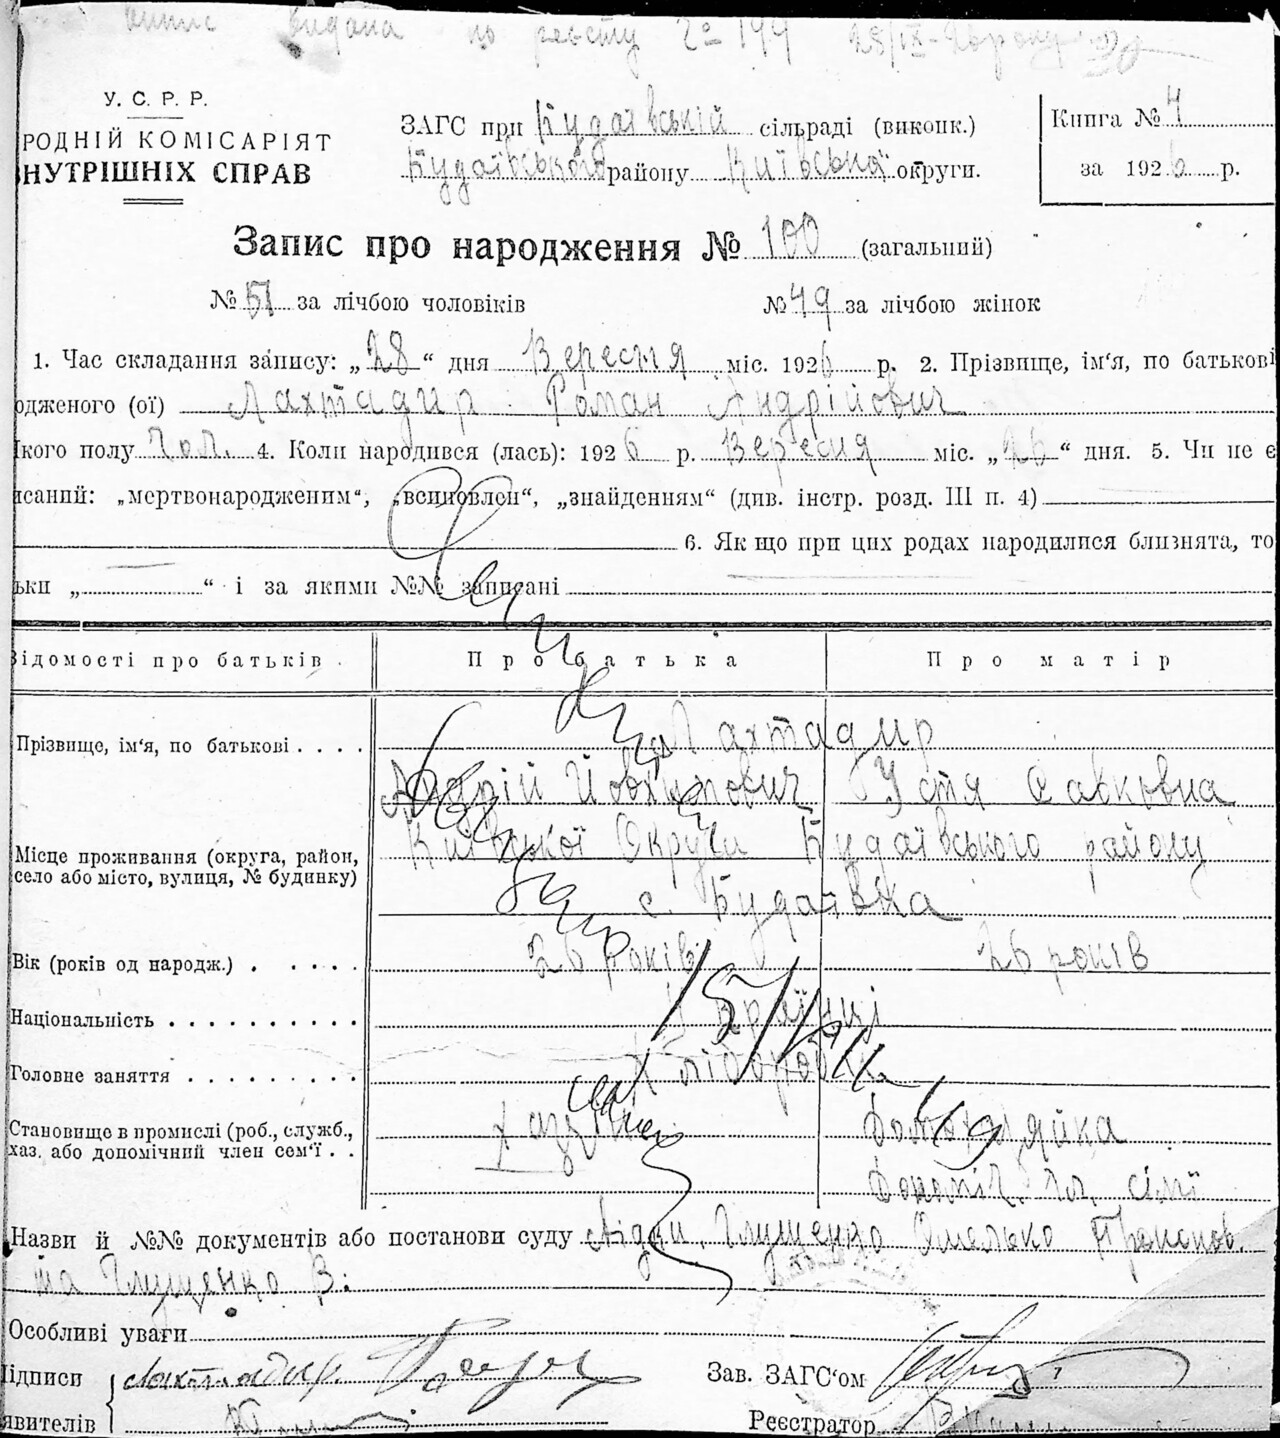 випис видана по реєсту № 144 28/IX-26 року
У. С. Р. Р.
РОДНІЙ КОМІСАРІЯТ
НУТРІШНІХ СПРАВ
ЗАГС при Будаївській сільраді (виконк.)
Будаївського району Київська округи.
Книга № 4
за 1926 р.
Запис про народження № 100 (загальний)
№ 51 за лічбою чоловіків № 49 за лічбою жінок
1. Час складання запису: „28“ дня Вересня міс. 1926 р. 2. Прізвище, ім‘я, по батькові
одженого (ої) Лахтадир Роман Андрійович
кого полу чол. 4. Коли народився (лась): 1926 р. Вересня міс. „26“ дня. 5. Чи не є
исаний: „мертвонародженим“, „всиновлен“, „знайденням“ (див. інстр. розд. III п. 4)
6. Як що при цих родах народилися близнята, то
ьки „ “ і за якими №№ записані
Відомості про батьків. Про батька Про матір
Прізвище, ім‘я, по батькові . . . . Лахтадир
Андрій Йовхимович Устя Савковна
Місце проживання (округа, район, село або місто, вулиця, № будинку) Київської Округи Будаївського району
с. Будаївка
Вік (років од народж.) . . . . . 26 років 26 років
Національність . . . . . . . . . . Українці
Головне заняття . . . . . . . . . Хлібороби
Становище в промислі (роб., служб., хаз. або допомічний член сем‘ї . . Хазяїн Домохазяйка
Допоміч. чл. сімї
Назви й №№ документів або постанови суду Свідки, Глущенко Омелько
та Глущенко В.
Особливі уваги
ідписи Лахтадир
явителів
Зав. ЗАГС‘ом
Реєстратор